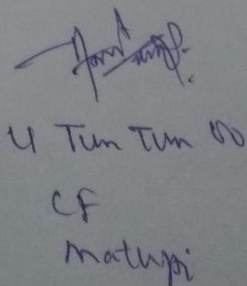 U Tun Tun Oo
CF
Matupi